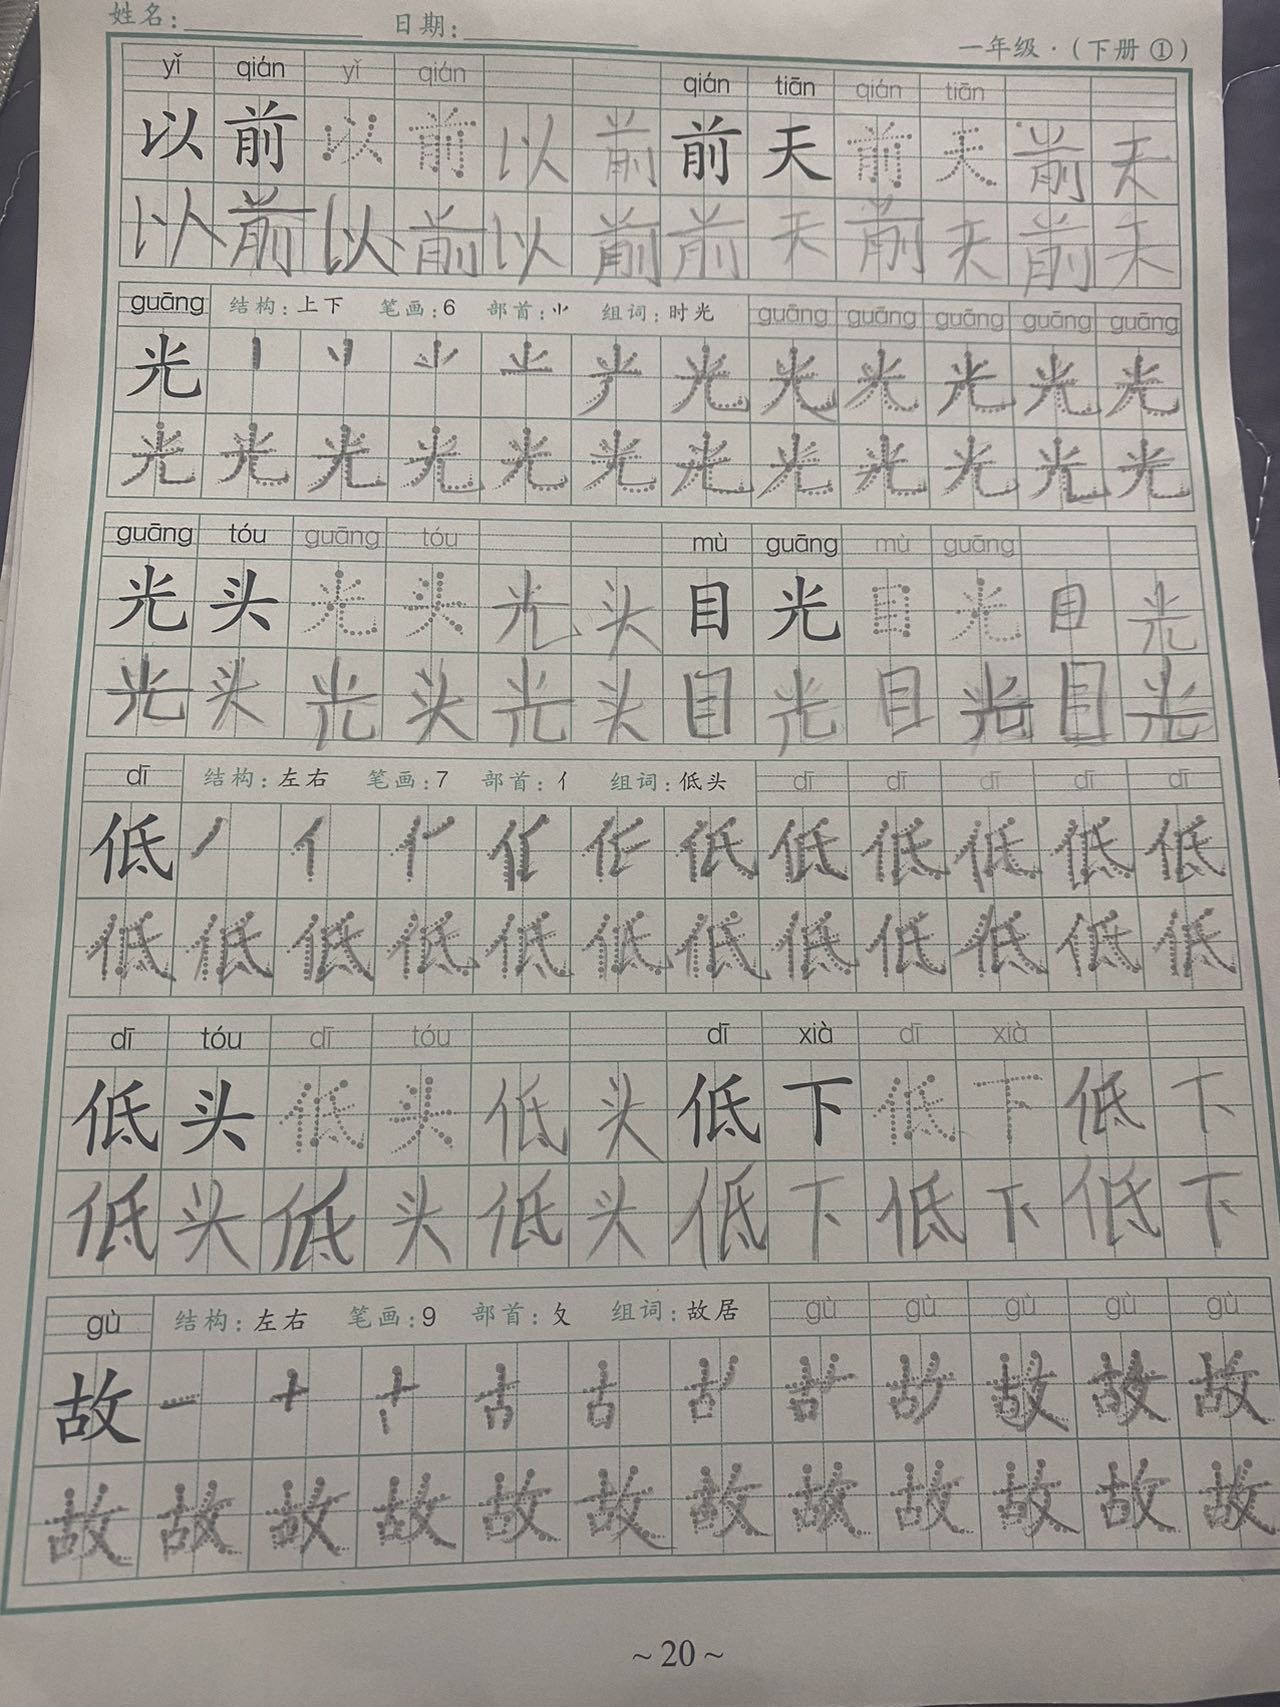 姓名: 日期:
一年级·(下册①)
yǐ qián yǐ qián qián tiān qián tiān
以前以前以前前天前天前天
以前以前以前前天前天前天
guāng 结构:上下 笔画:6 部首:⺌ 组词:时光 guāng guāng guāng guāng guāng
光 光光光光光光
光光光光光光光光光光光光
guāng tóu guāng tóu mù guāng mù guāng
光头光头光头目光目光目光
光头光头光头目光目光目光
dī 结构:左右 笔画:7 部首:亻 组词:低头 dī dī dī dī dī
低 丿 亻 低低低低低低
低低低低低低低低低低低低
dī tóu dī tóu dī xià dī xià
低头低头低头低下低下低下
低头低头低头低下低下低下
gù 结构:左右 笔画:9 部首:攵 组词:故居 gù gù gù gù gù
故 一 十 古 古 故故故
故故故故故故故故故故故故
~20~